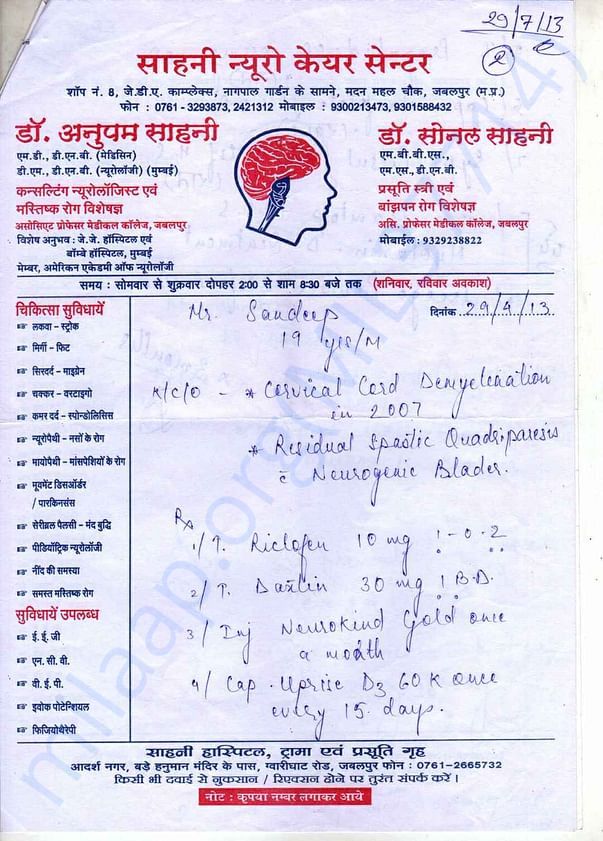 29/7/13
2
साहनी न्यूरो केयर सेन्टर
शॉप नं. 8, जे.डी.ए. काम्प्लेक्स, नागपाल गार्डन के सामने, मदन महल चौक, जबलपुर (म.प्र.)
फोन : 0761 - 3293873, 2421312 मोबाइल : 9300213473, 9301588432
डॉ. अनुपम साहनी
एम.डी., डी.एन.बी. (मेडिसिन)
डी.एम., डी.एन.बी. (न्यूरोलॉजी) (मुम्बई)
कन्सल्टिंग न्यूरोलॉजिस्ट एवं
मस्तिष्क रोग विशेषज्ञ
असोसिएट प्रोफेसर मेडीकल कॉलेज, जबलपुर
विशेष अनुभव : जे.जे. हॉस्पिटल एवं
बॉम्बे हॉस्पिटल, मुम्बई
मेम्बर, अमेरिकन एकेडमी ऑफ न्यूरोलॉजी
डॉ. सोनल साहनी
एम.बी.बी.एस.,
एम.एस., डी.एन.बी.
प्रसूति स्त्री एवं
बांझपन रोग विशेषज्ञ
असि. प्रोफेसर मेडीकल कॉलेज, जबलपुर
मोबाईल : 9329238822
समय : सोमवार से शुक्रवार दोपहर 2:00 से शाम 8:30 बजे तक (शनिवार, रविवार अवकाश)
चिकित्सा सुविधायें
लकवा - स्ट्रोक
मिर्गी - फिट
सिरदर्द - माइग्रेन
चक्कर - वरटाइगो
कमर दर्द - स्पोन्डोलिसिस
न्यूरोपैथी - नसों के रोग
मायोपैथी - मांसपेशियों के रोग
मूवमेंट डिसऑर्डर
/ पारकिनसंस
सेरीब्रल पैलसी - मंद बुद्धि
पीडियॉट्रिक न्यूरोलॉजी
नींद की समस्या
समस्त मस्तिष्क रोग
सुविधायें उपलब्ध
ई.ई.जी
एन.सी.वी.
वी.ई.पी.
इवोक पोटेन्शियल
फिजियोथेरेपी
Mr. Sandeep
दिनांक 29/4/13
19 yrs/M
K/C/O - * Cervical Cord Demyelenation
in 2007
* Residual Spastic Quadriparesis
c̄ Neurogenic Blader.
Rx
1/ T. Riclofen 10 mg 1-0-2
2/ T. Daxlin 30 mg 1 B.D.
3/ Inj Neurokind Gold once
a month
4/ Cap. Uprise D3 60 K once
every 15 days.
साहनी हास्पिटल, ट्रामा एवं प्रसूति गृह
आदर्श नगर, बड़े हनुमान मंदिर के पास, ग्वारीघाट रोड, जबलपुर फोन : 0761-2665732
किसी भी दवाई से नुकसान / रिएक्शन होने पर तुरंत संपर्क करें।
नोट : कृपया नम्बर लगाकर आये